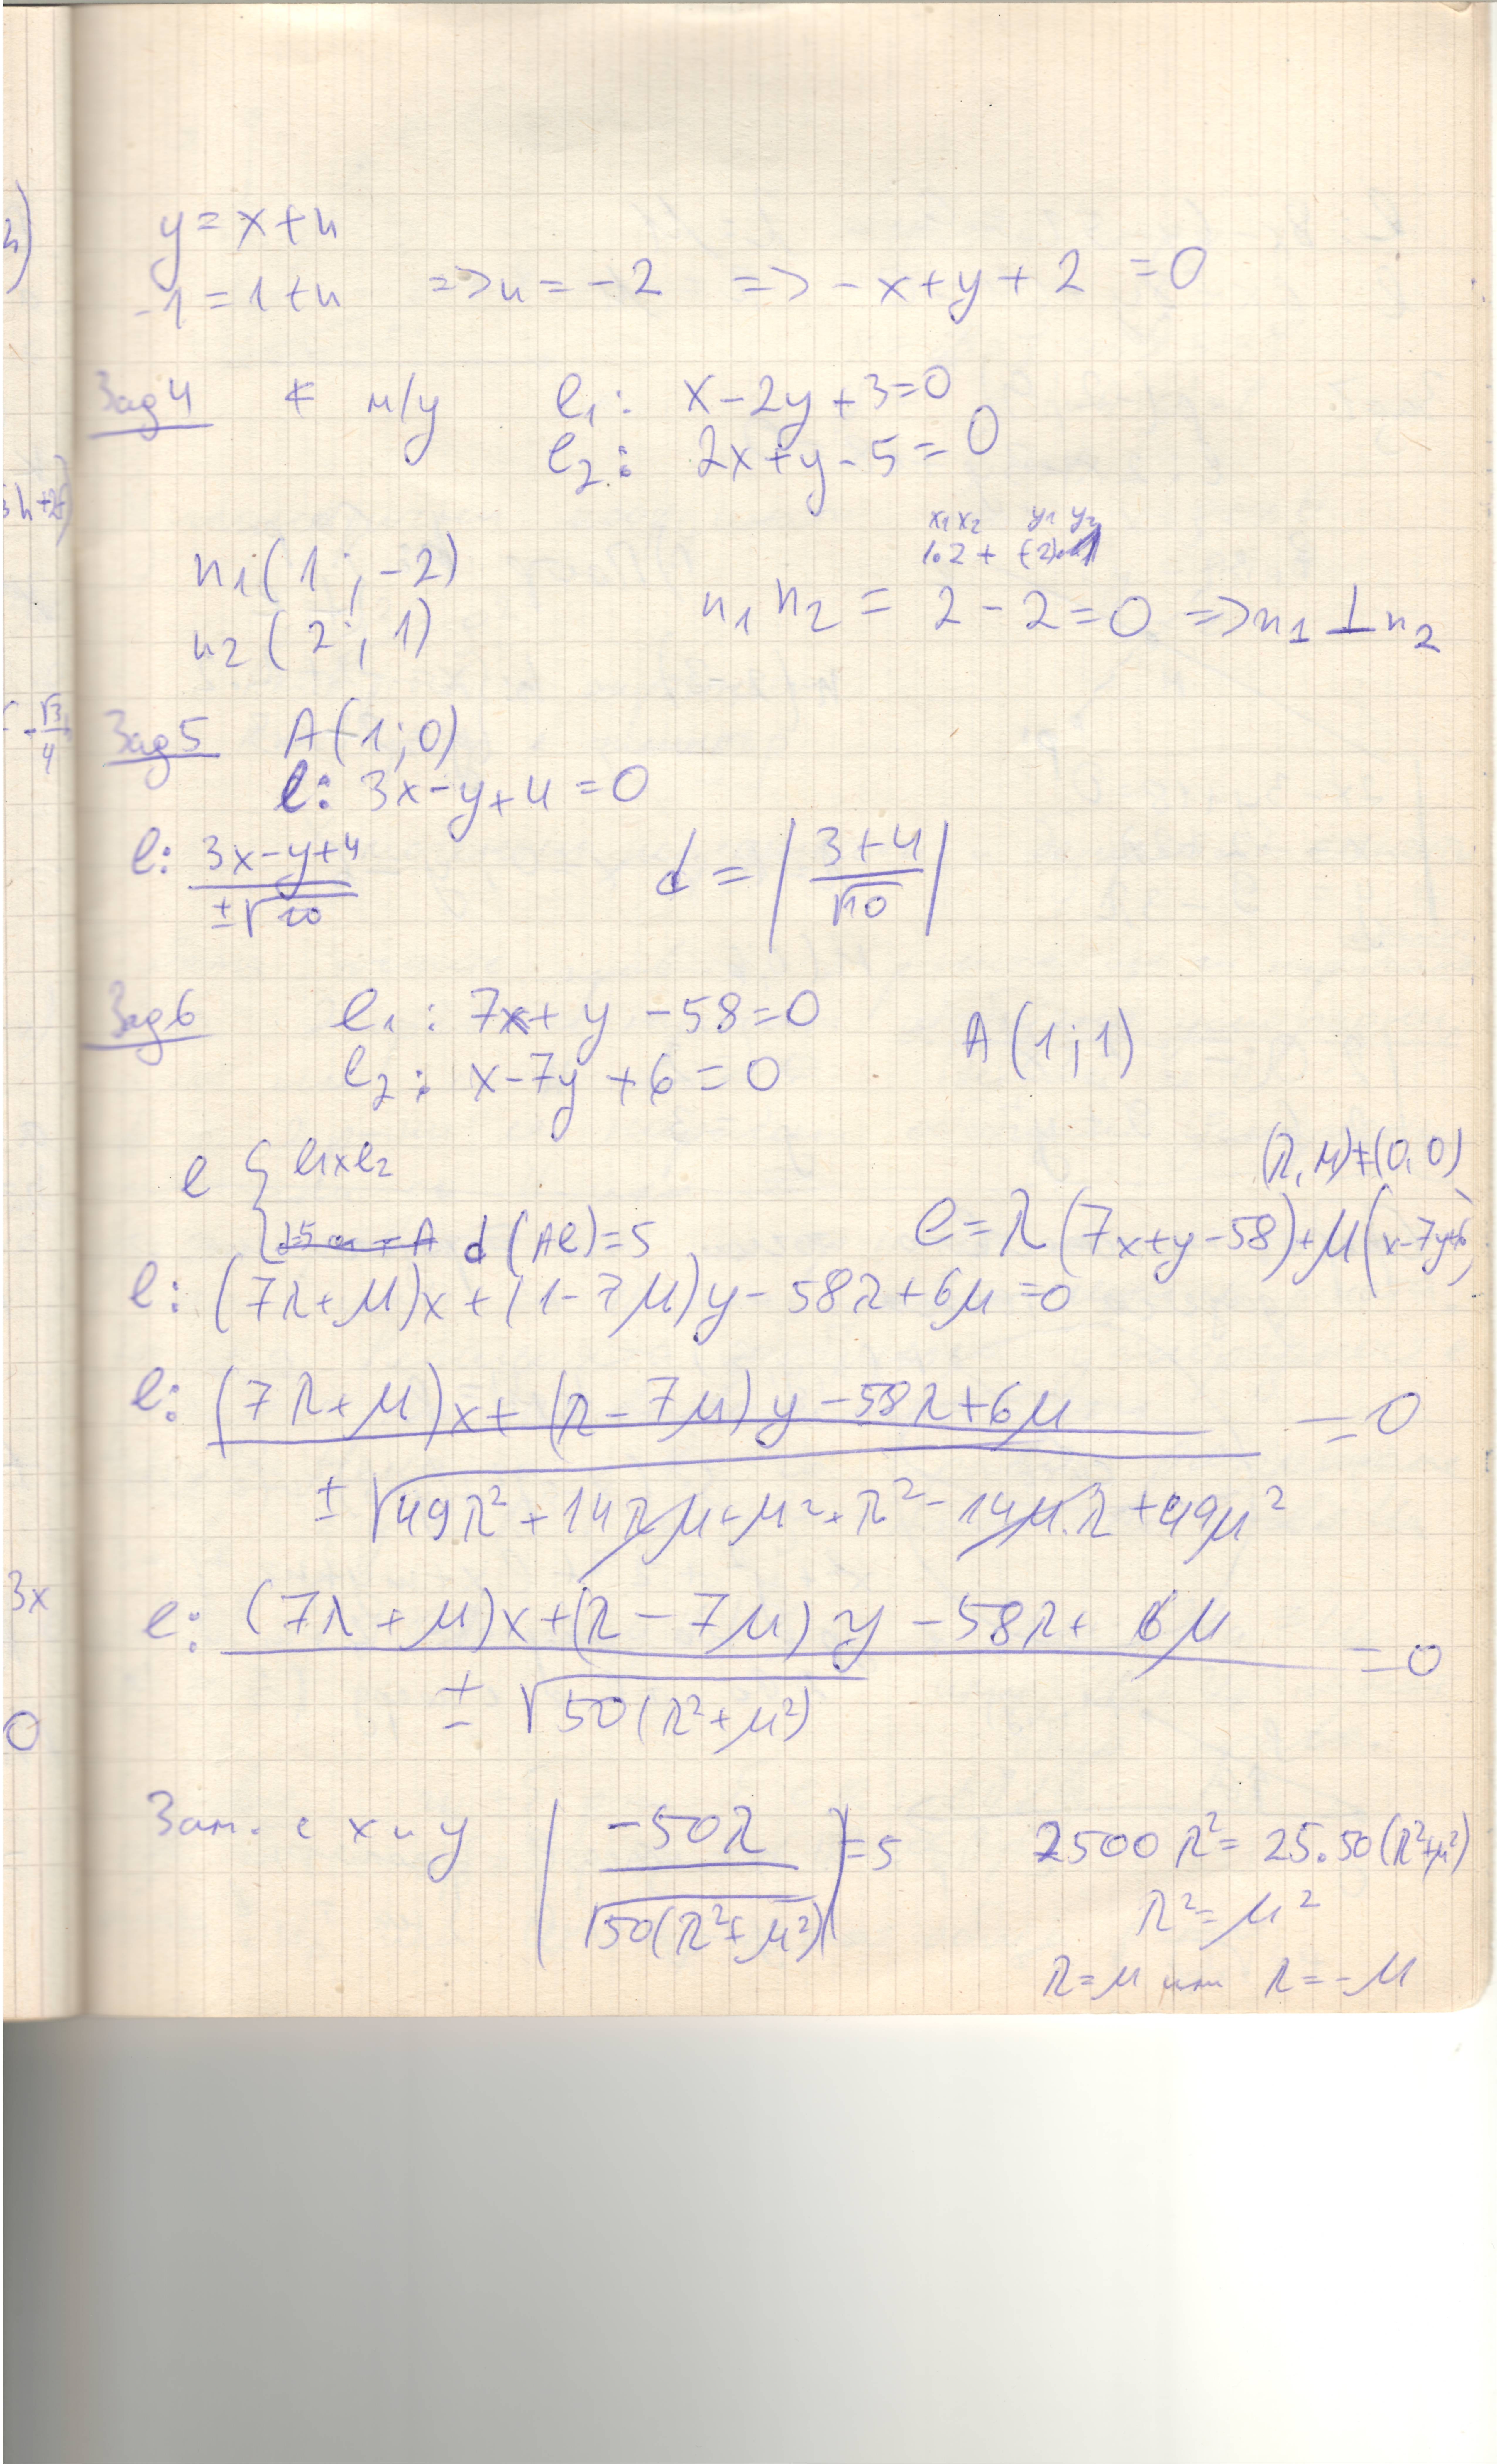 y = x + n
-1 = 1 + n => n = -2 => -x + y + 2 = 0
Зад 4 ∢ м/у l₁: x - 2y + 3 = 0
l₂: 2x + y - 5 = 0
x₁x₂ y₁y₂
1.2 + (-2).1
n₁(1; -2)
n₁n₂ = 2 - 2 = 0 => n₁ ⊥ n₂
n₂(2; 1)
Зад 5 A(1; 0)
l: 3x - y + 4 = 0
l: (3x - y + 4) / (±√10) d = |(3 + 4) / √10|
Зад 6 l₁: 7x + y - 58 = 0 A(1; 1)
l₂: x - 7y + 6 = 0
l { l₁ x l₂ (λ, μ) ≠ (0, 0)
d(Al) = 5 l = λ(7x + y - 58) + μ(x - 7y + 6)
l: (7λ + μ)x + (1 - 7μ)y - 58λ + 6μ = 0
l: ((7λ + μ)x + (λ - 7μ)y - 58λ + 6μ) / (±√(49λ² + 14λμ + μ² + λ² - 14μ.λ + 49μ²)) = 0
l: ((7λ + μ)x + (λ - 7μ)y - 58λ + 6μ) / (±√(50(λ² + μ²))) = 0
Зам. с x и y |-50λ / √(50(λ² + μ²))| = 5 2500λ² = 25.50(λ² + μ²)
λ² = μ²
λ = μ или λ = -μ
3h + 25
-√3/4
3x
0